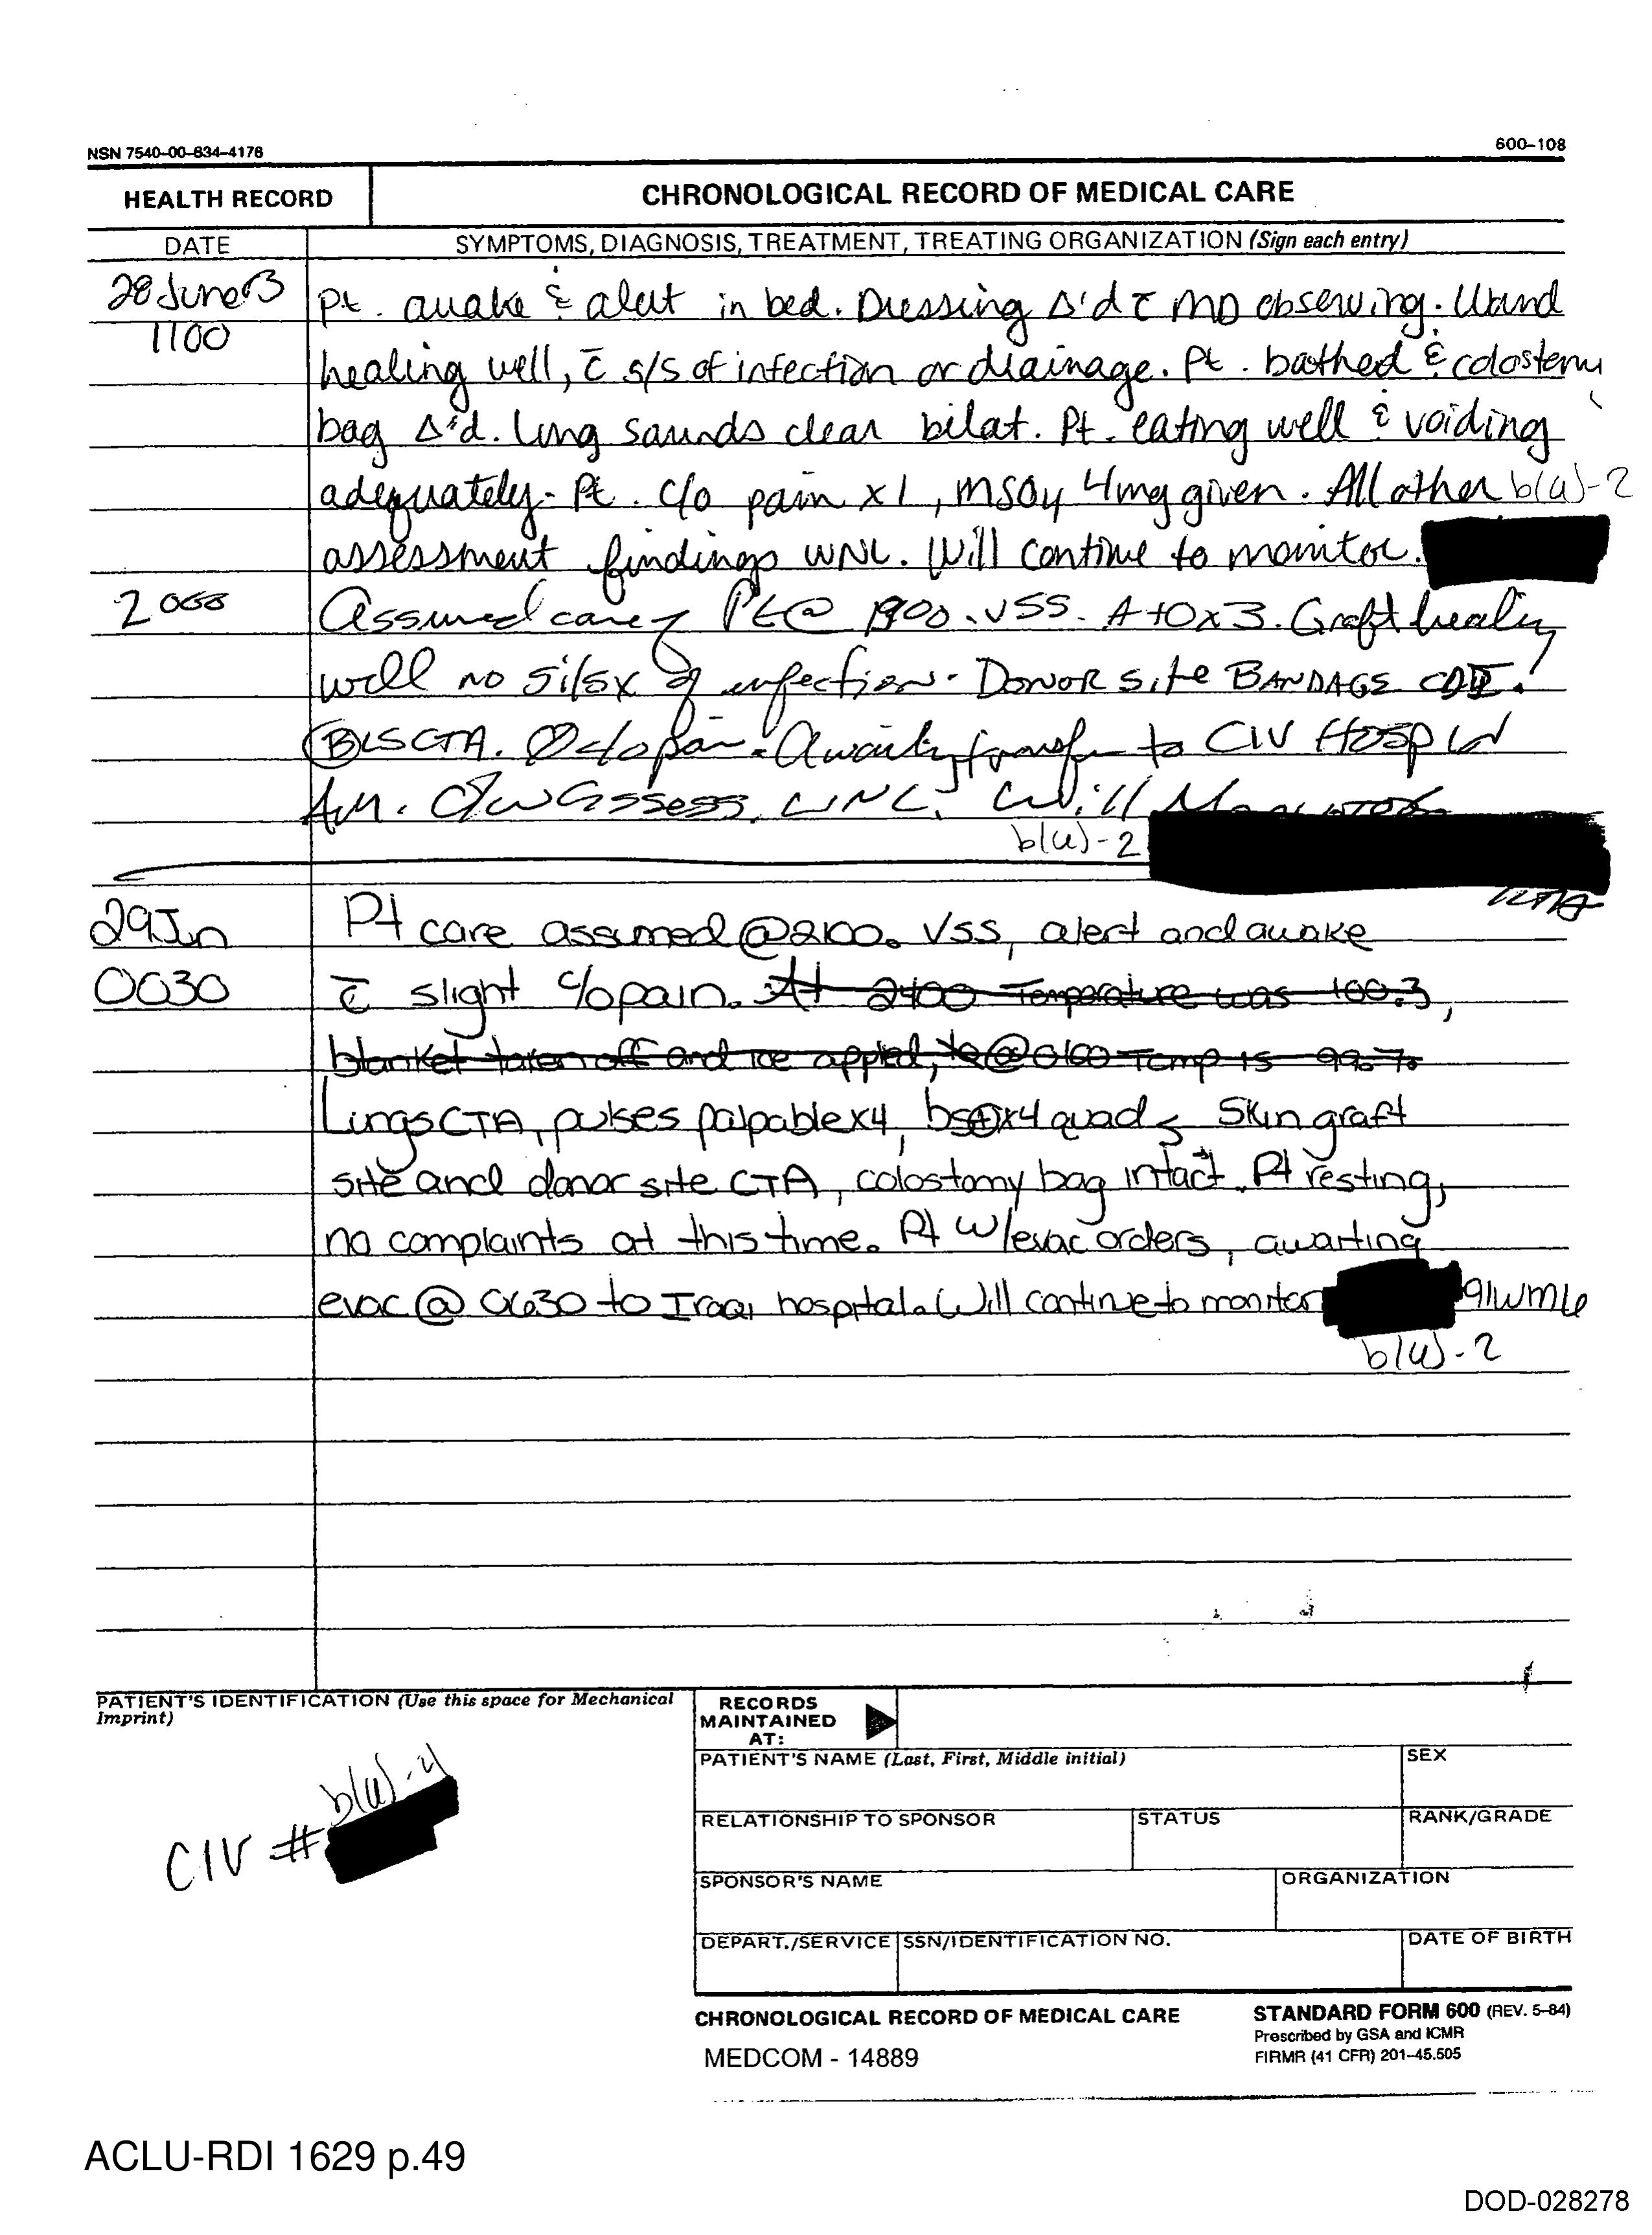 NSN 7540-00-634-4176
600-108
HEALTH RECORD
CHRONOLOGICAL RECORD OF MEDICAL CARE
DATE
SYMPTOMS, DIAGNOSIS, TREATMENT, TREATING ORGANIZATION (Sign each entry)
28 June 03 Pt. awake & alert in bed. Dressing Δ'd c̄ MD observing. Wound
1100
healing well, c̄ s/s of infection or drainage. Pt. bathed & colostomy
bag Δ'd. Lung sounds clear bilat. Pt. eating well & voiding
adequately. Pt. c/o pain x1, MSO4 4mg given. All other b(6)-2
assessment findings WNL. Will continue to monitor.
2000 Assumed care of Pt @ 1900. VSS. A+Ox3. Graft healing
well no si/sx of infection. Donor site BANDAGE CDI.
BLSCTA. Ø c/o pain. Awaiting transfer to CIV Hosp in
AM. Assess. WNL. Will Monitor
b(6)-2
29Jn Pt care assumed @2100. VSS, alert and awake
0030 c̄ slight c/o pain. At 2400 Temperature was 100.3,
blanket taken off and ice applied, @0100 Temp is 99.7.
Lungs CTA, pulses palpable x4, bs⊕x4 quads Skin graft
site and donor site CTA, colostomy bag intact. Pt resting,
no complaints at this time. Pt w/evac orders, awaiting
evac @ 0630 to Iraqi hospital. Will continue to monitor 91WM6
b(6)-2
PATIENT'S IDENTIFICATION (Use this space for Mechanical
Imprint)
RECORDS
MAINTAINED
AT:
PATIENT'S NAME (Last, First, Middle initial)
SEX
b(6)-4
CIV #
RELATIONSHIP TO SPONSOR
STATUS
RANK/GRADE
SPONSOR'S NAME
ORGANIZATION
DEPART./SERVICE
SSN/IDENTIFICATION NO.
DATE OF BIRTH
CHRONOLOGICAL RECORD OF MEDICAL CARE
STANDARD FORM 600 (REV. 5-84)
Prescribed by GSA and ICMR
FIRMR (41 CFR) 201-45.505
MEDCOM - 14889
ACLU-RDI 1629 p.49
DOD-028278